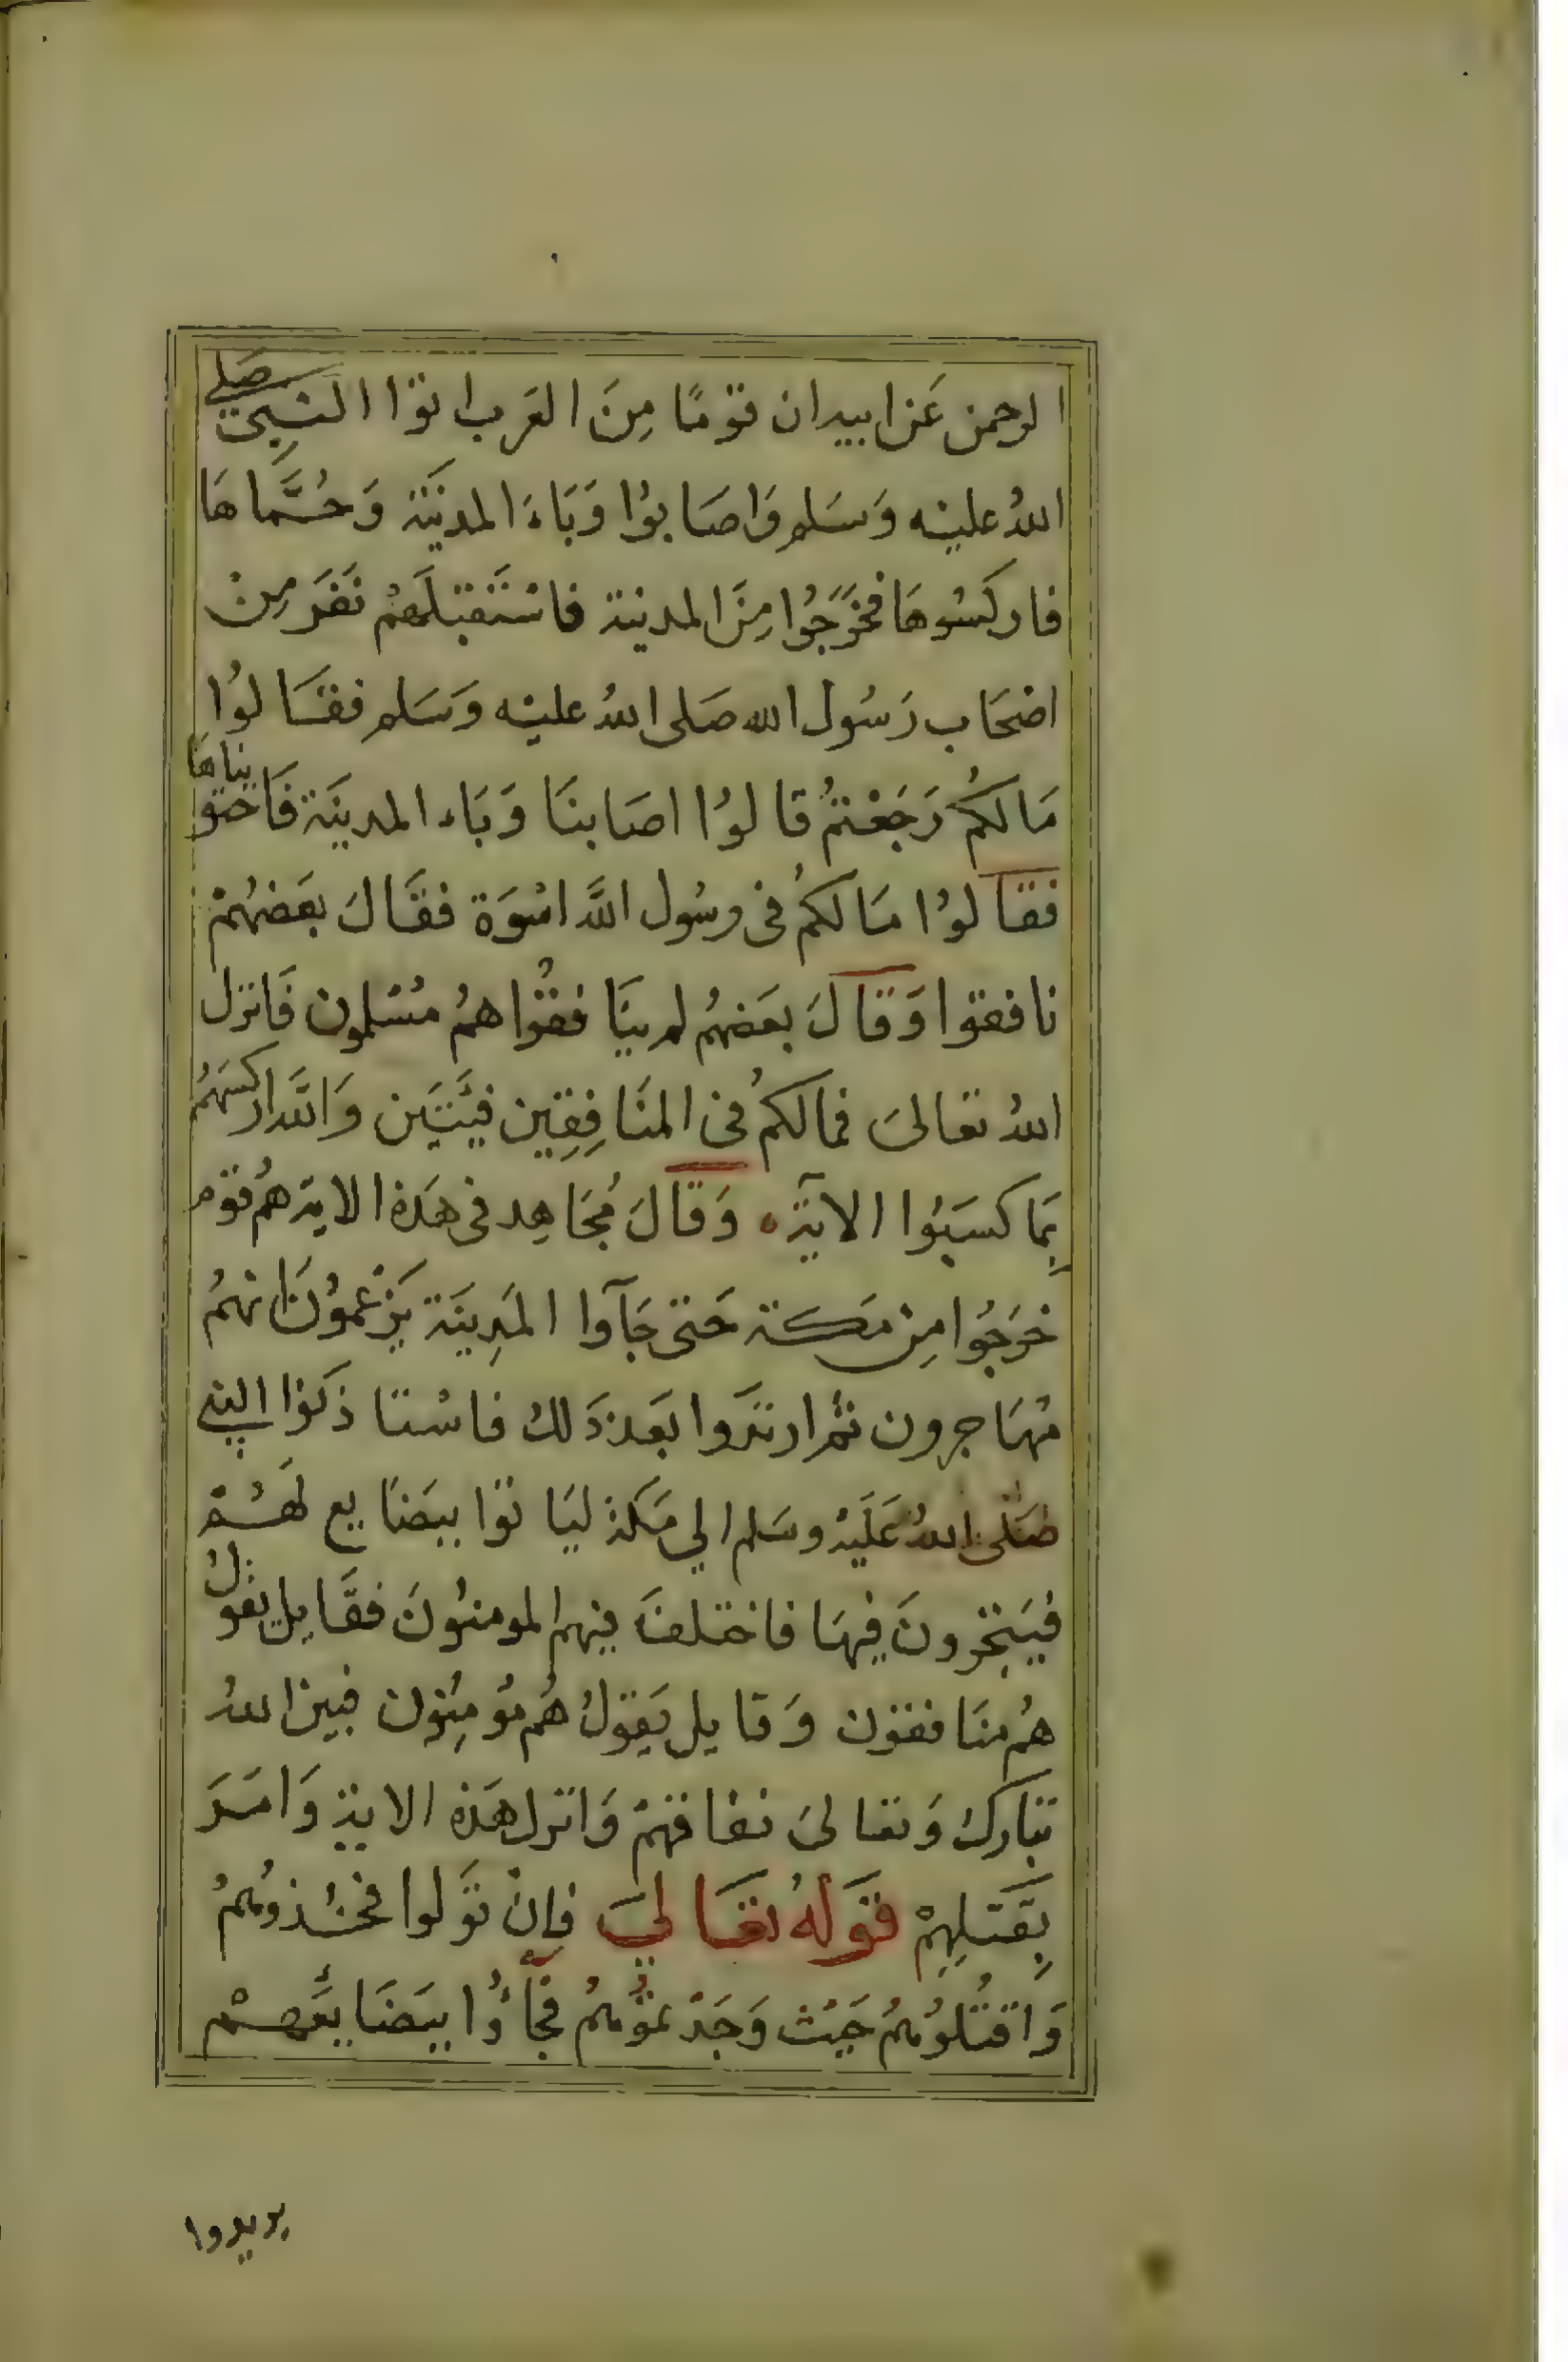 الرحمن عَن ابيه ان قَوْمًا مِنَ العَرب اتوا النَبِيّ صَلى
اللهُ عليْه وَسَلم وَاصَابوُا وَبَاءَ المدينَة وَحُمَّاهَا
فاركسُوهَا فخَرَجُوا مِنَ المدينة فاسْتَقبَلَهُمْ نَفَر مِنْ
اصْحَاب رَسُول الله صَلى اللهُ عليْه وَسَلم فقَالوُا
مَالكُم رَجَعْتمُ قالوُا اصَابنَا وَبَاء المدينَة فَاجتوَيناهَا
فقَالوُا مَالكمُ في رسُول اللَّه اسْوَة فقَالَ بعَضهُمْ
نافقوا وَقالَ بعَضهُم لم ينَافقوُا همُ مُسْلمون فَانزل
اللهُ تعالىَ فمالكمُ في المنَافِقِين فيئَتَين وَاللَّه اركسَهُم
بِمَا كسَبُوا الايَة وَقالَ مُجَاهِد في هَذه الاية همُ قوَم
خرَجُوا مِنْ مَكة حَتى جَآوا المَدِينَة يَزْعمُونَ انهمُ
مُهَاجرون ثم ارتدَوا بعَد ذَلكُ فاسْتاذَنوُا النبي
صَلى اللهُ عَلَيْهْ وسَلم الي مَكة ليَاتوا ببضَايع لَهُمْ
فيَتجِرونَ فِيهَا فاختلفَ فيهم المومنوُنَ فقَايل يقول
هُم منَافقوُن وَقايل يَقوَلُ هُم مُومِنوُن فبينَ اللهُ
تبَارك وَتعَالىَ نفاقهمْ وَانزل هَذه الاية وَامَرَ
بِقَتلِهِمْ قوَلهُ تعَاليَ فِانْ توَلوا فخُذومُهمُ
وَاقتُلوُهمُ حَيْث وَجَدْتموُهمُ فجَاؤُا ببضَايعَهمْ
يريدوا